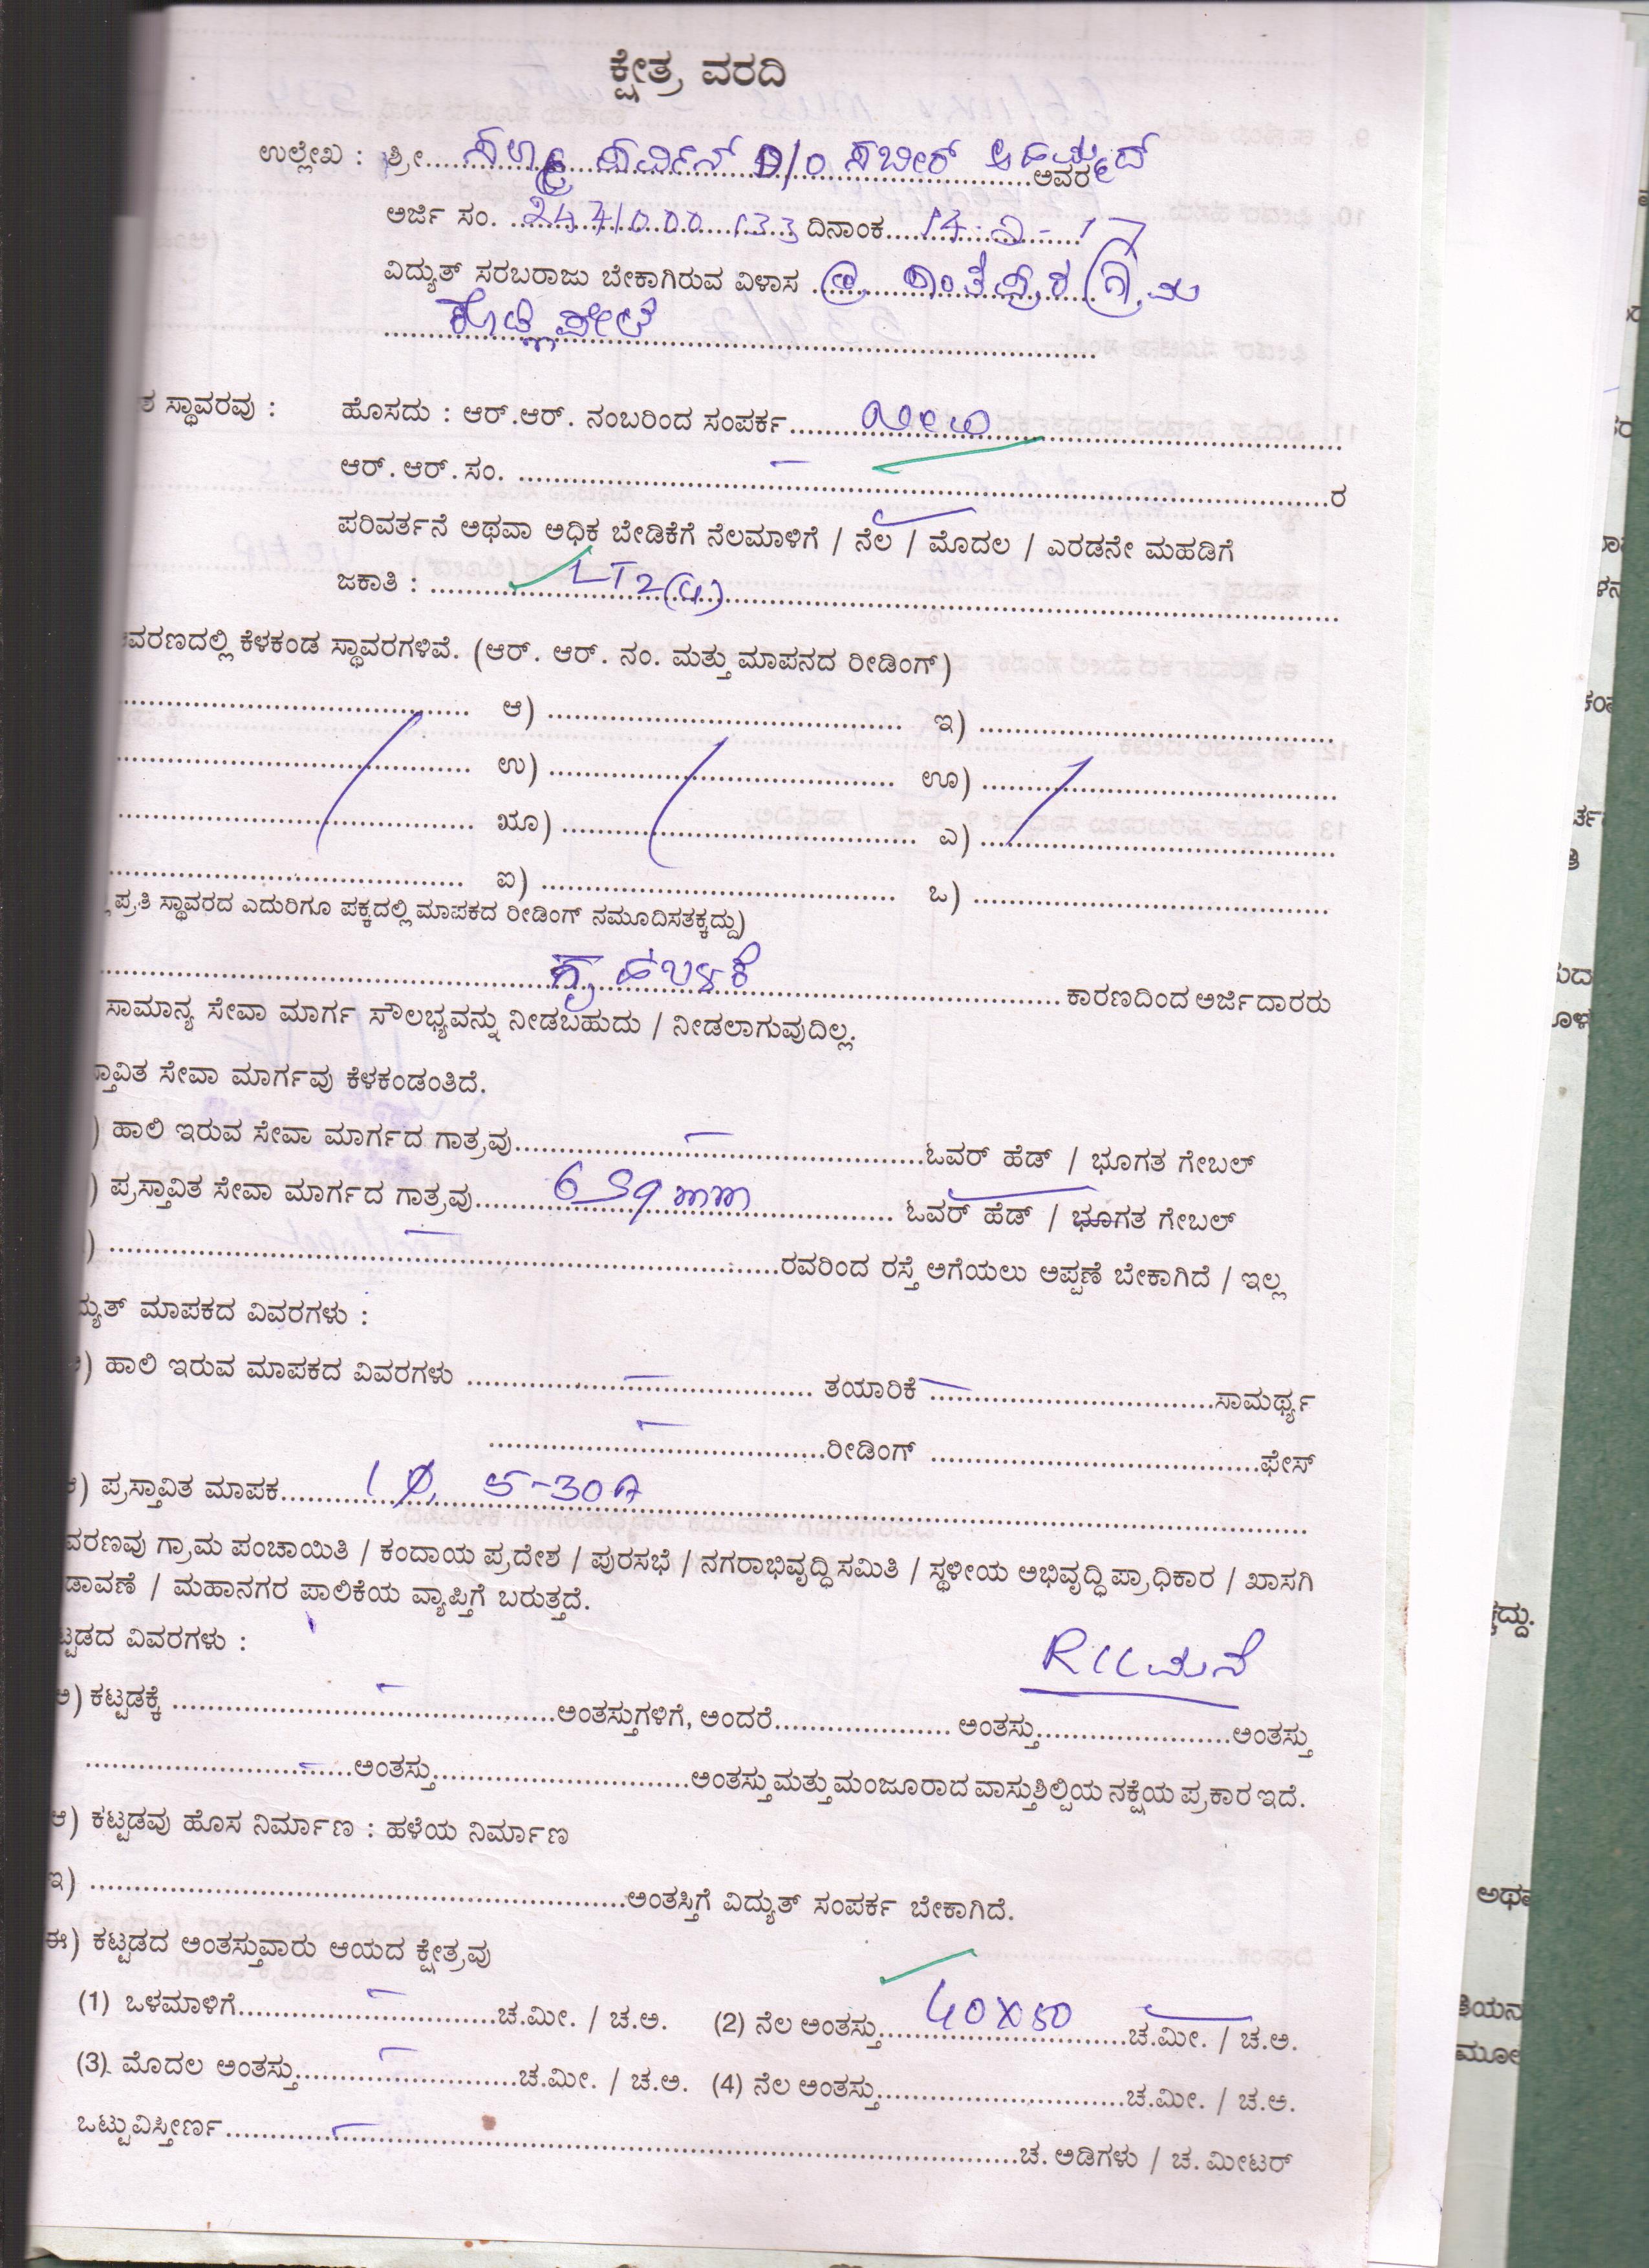 ಕ್ಷೇತ್ರ ವರದಿ
ಉಲ್ಲೇಖ : ಶ್ರೀ.......... ಪರ್ವೀನ್ D/o ಸಬೀರ್ ಅಹಮ್ಮದ್ ..........ಅವರ
ಅರ್ಜಿ ಸಂ. ..2471000133 ದಿನಾಂಕ....14-2-17
ವಿದ್ಯುತ್ ಸರಬರಾಜು ಬೇಕಾಗಿರುವ ವಿಳಾಸ ..........
ಸ್ಥಾವರವು : ಹೊಸದು : ಆರ್.ಆರ್. ನಂಬರಿಂದ ಸಂಪರ್ಕ..........
ಆರ್. ಆರ್. ಸಂ. .......... – ..........ರ
ಪರಿವರ್ತನೆ ಅಥವಾ ಅಧಿಕ ಬೇಡಿಕೆಗೆ ನೆಲಮಾಳಿಗೆ / ನೆಲ / ಮೊದಲ / ಎರಡನೇ ಮಹಡಿಗೆ
ಜಕಾತಿ : .......... LT2(a) ..........
ವರಣದಲ್ಲಿ ಕೆಳಕಂಡ ಸ್ಥಾವರಗಳಿವೆ. (ಆರ್. ಆರ್. ನಂ. ಮತ್ತು ಮಾಪನದ ರೀಡಿಂಗ್)
.......... ಆ) .......... ಇ) ..........
.......... ಉ) .......... ಊ) ..........
.......... ಋೂ) .......... ಎ) ..........
.......... ಐ) .......... ಒ) ..........
ಪ್ರತಿ ಸ್ಥಾವರದ ಎದುರಿಗೂ ಪಕ್ಕದಲ್ಲಿ ಮಾಪಕದ ರೀಡಿಂಗ್ ನಮೂದಿಸತಕ್ಕದ್ದು)
.......... ಗೃಹಬಳಕೆ .......... ಕಾರಣದಿಂದ ಅರ್ಜಿದಾರರು
ಸಾಮಾನ್ಯ ಸೇವಾ ಮಾರ್ಗ ಸೌಲಭ್ಯವನ್ನು ನೀಡಬಹುದು / ನೀಡಲಾಗುವುದಿಲ್ಲ.
ಸ್ತಾವಿತ ಸೇವಾ ಮಾರ್ಗವು ಕೆಳಕಂಡಂತಿದೆ.
) ಹಾಲಿ ಇರುವ ಸೇವಾ ಮಾರ್ಗದ ಗಾತ್ರವು.......... – ..........ಓವರ್ ಹೆಡ್ / ಭೂಗತ ಗೇಬಲ್
) ಪ್ರಸ್ತಾವಿತ ಸೇವಾ ಮಾರ್ಗದ ಗಾತ್ರವು.......... 6 Sq mm .......... ಓವರ್ ಹೆಡ್ / ಭೂಗತ ಗೇಬಲ್
) .......... – ..........ರವರಿಂದ ರಸ್ತೆ ಅಗೆಯಲು ಅಪ್ಪಣೆ ಬೇಕಾಗಿದೆ / ಇಲ್ಲ
ದ್ಯುತ್ ಮಾಪಕದ ವಿವರಗಳು :
) ಹಾಲಿ ಇರುವ ಮಾಪಕದ ವಿವರಗಳು .......... – .......... ತಯಾರಿಕೆ – ..........ಸಾಮರ್ಥ್ಯ
.......... – ..........ರೀಡಿಂಗ್ ..........ಫೇಸ್
ಆ) ಪ್ರಸ್ತಾವಿತ ಮಾಪಕ.......... 1 Ø, 5-30A ..........
ವರಣವು ಗ್ರಾಮ ಪಂಚಾಯಿತಿ / ಕಂದಾಯ ಪ್ರದೇಶ / ಪುರಸಭೆ / ನಗರಾಭಿವೃದ್ಧಿ ಸಮಿತಿ / ಸ್ಥಳೀಯ ಅಭಿವೃದ್ಧಿ ಪ್ರಾಧಿಕಾರ / ಖಾಸಗಿ
ಡಾವಣೆ / ಮಹಾನಗರ ಪಾಲಿಕೆಯ ವ್ಯಾಪ್ತಿಗೆ ಬರುತ್ತದೆ.
ಟ್ಟಡದ ವಿವರಗಳು : RCCಮನೆ
ಅ) ಕಟ್ಟಡಕ್ಕೆ .......... – ..........ಅಂತಸ್ತುಗಳಿಗೆ, ಅಂದರೆ.......... ಅಂತಸ್ತು..........ಅಂತಸ್ತು
.......... – ..........ಅಂತಸ್ತು..........ಅಂತಸ್ತು ಮತ್ತು ಮಂಜೂರಾದ ವಾಸ್ತುಶಿಲ್ಪಿಯ ನಕ್ಷೆಯ ಪ್ರಕಾರ ಇದೆ.
ಆ) ಕಟ್ಟಡವು ಹೊಸ ನಿರ್ಮಾಣ : ಹಳೆಯ ನಿರ್ಮಾಣ
ಇ) ..........ಅಂತಸ್ತಿಗೆ ವಿದ್ಯುತ್ ಸಂಪರ್ಕ ಬೇಕಾಗಿದೆ.
ಈ) ಕಟ್ಟಡದ ಅಂತಸ್ತುವಾರು ಆಯದ ಕ್ಷೇತ್ರವು
(1) ಒಳಮಾಳಿಗೆ.......... – ..........ಚ.ಮೀ. / ಚ.ಅ. (2) ನೆಲ ಅಂತಸ್ತು.......... 40X50 ..........ಚ.ಮೀ. / ಚ.ಅ.
(3) ಮೊದಲ ಅಂತಸ್ತು.......... – ..........ಚ.ಮೀ. / ಚ.ಅ. (4) ನೆಲ ಅಂತಸ್ತು..........ಚ.ಮೀ. / ಚ.ಅ.
ಒಟ್ಟುವಿಸ್ತೀರ್ಣ.......... – ..........ಚ. ಅಡಿಗಳು / ಚ. ಮೀಟರ್